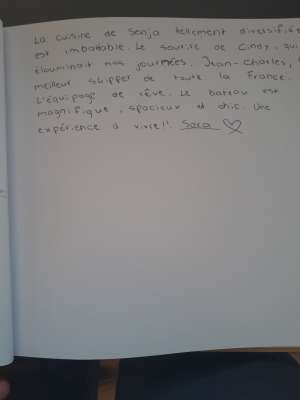 La cuisine de Senja tellement diversifiée
est imbattable. Le sourire de Cindy, qui
élouminait nos journées. Jean-Charles,
meilleur skipper de toute la France.
L'équipage de rêve. Le bateau est
magnifique, spacieux et chic. Une
expérience à vivre!! Sara